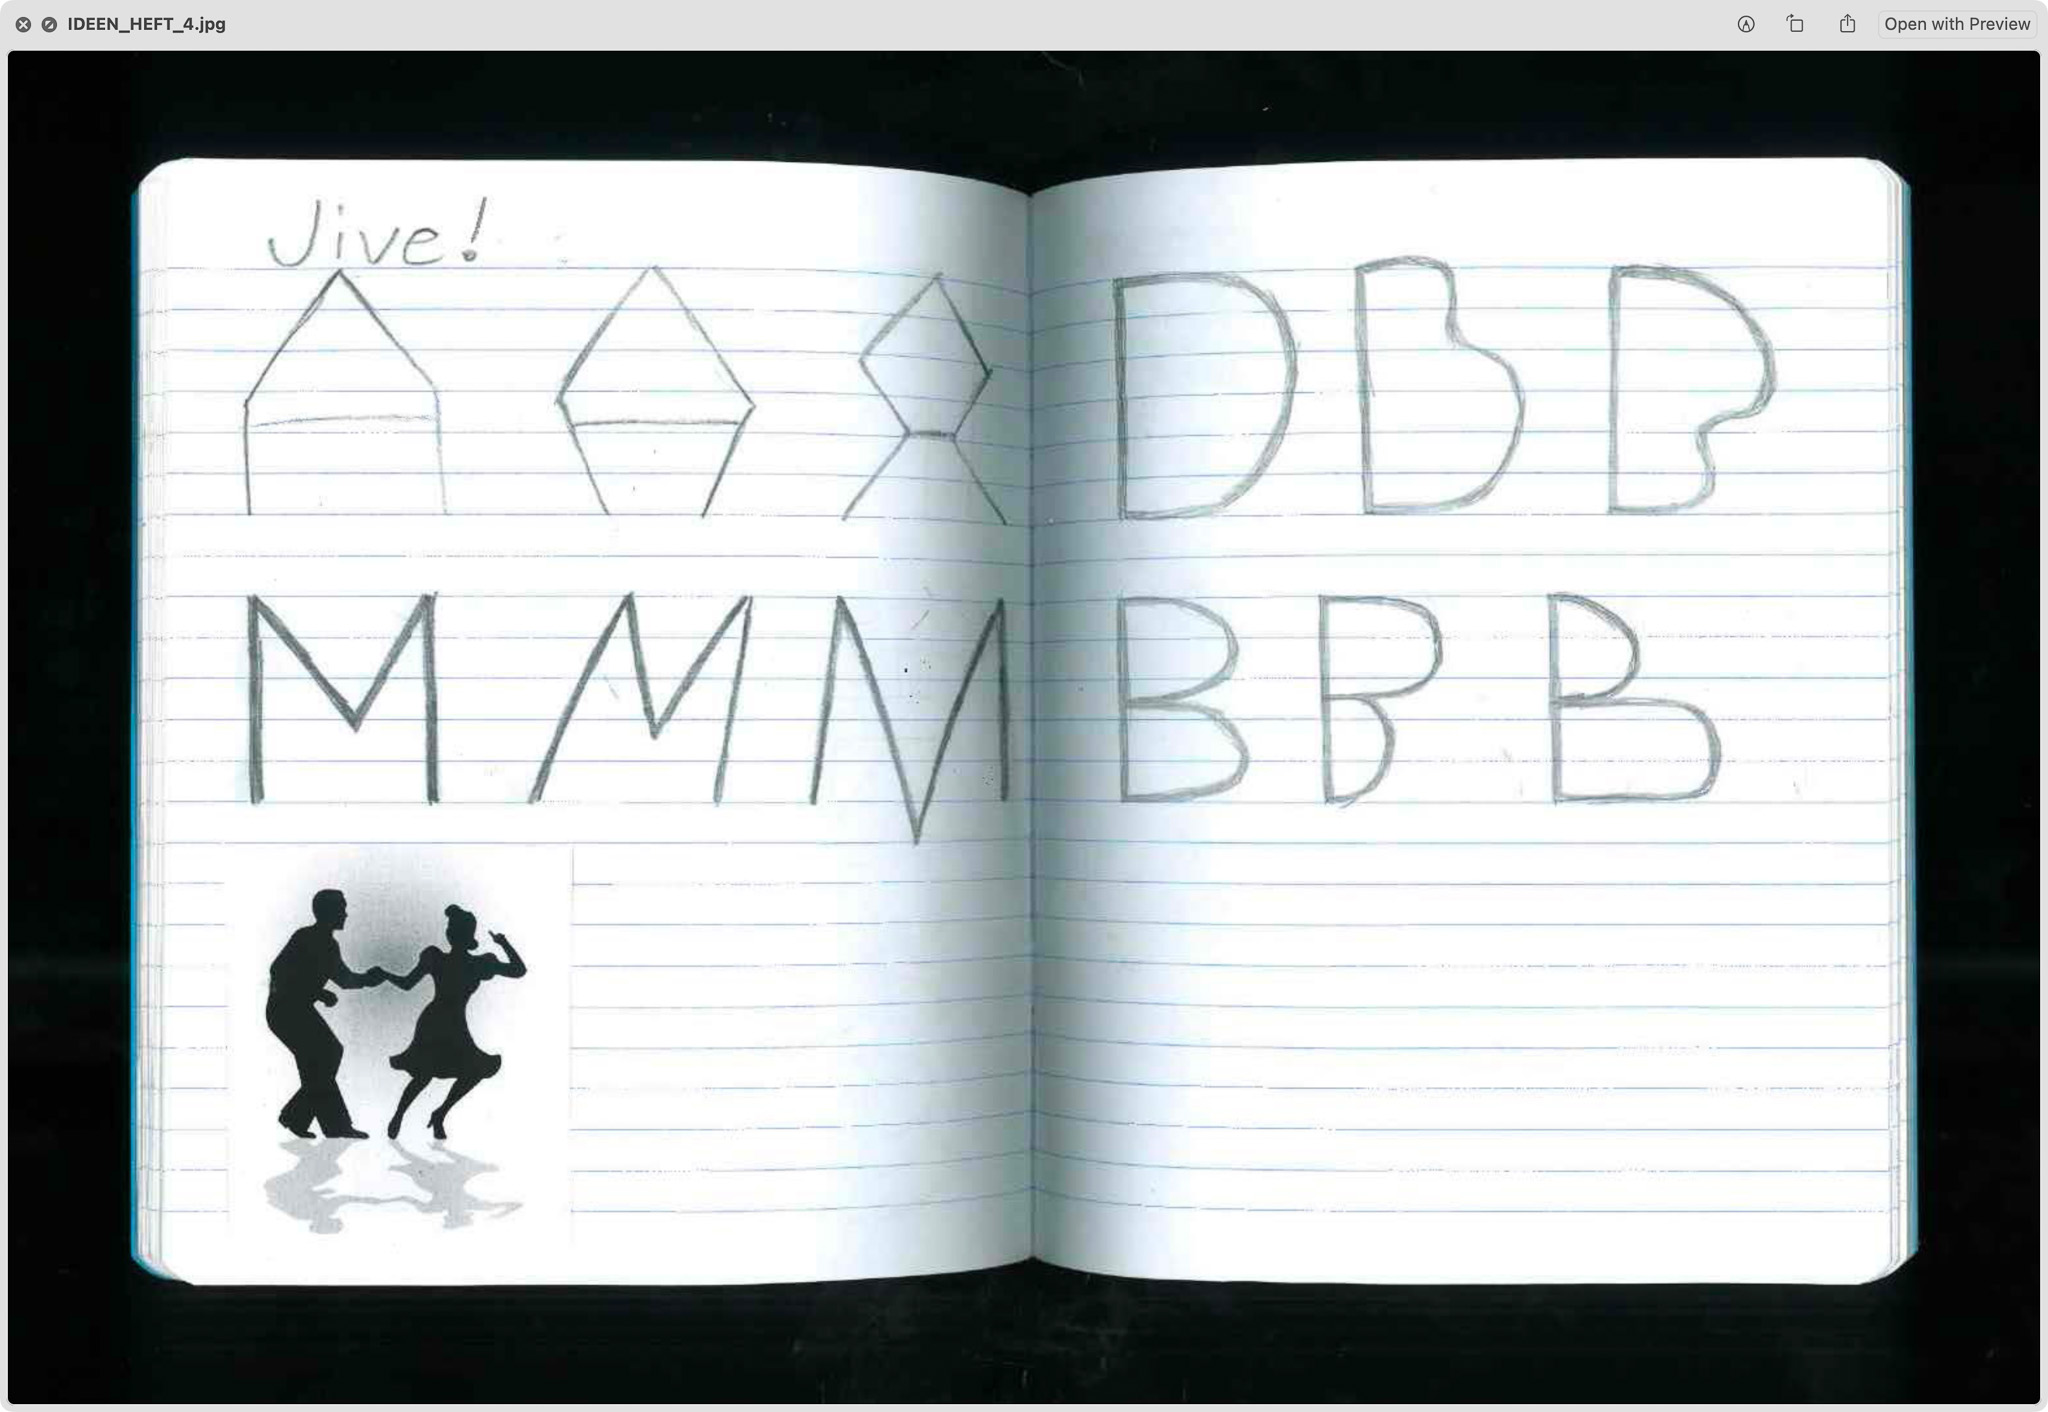 IDEEN_HEFT_4.jpg
Open with Preview
Jive!
A A A
M M M
D D D
B B B